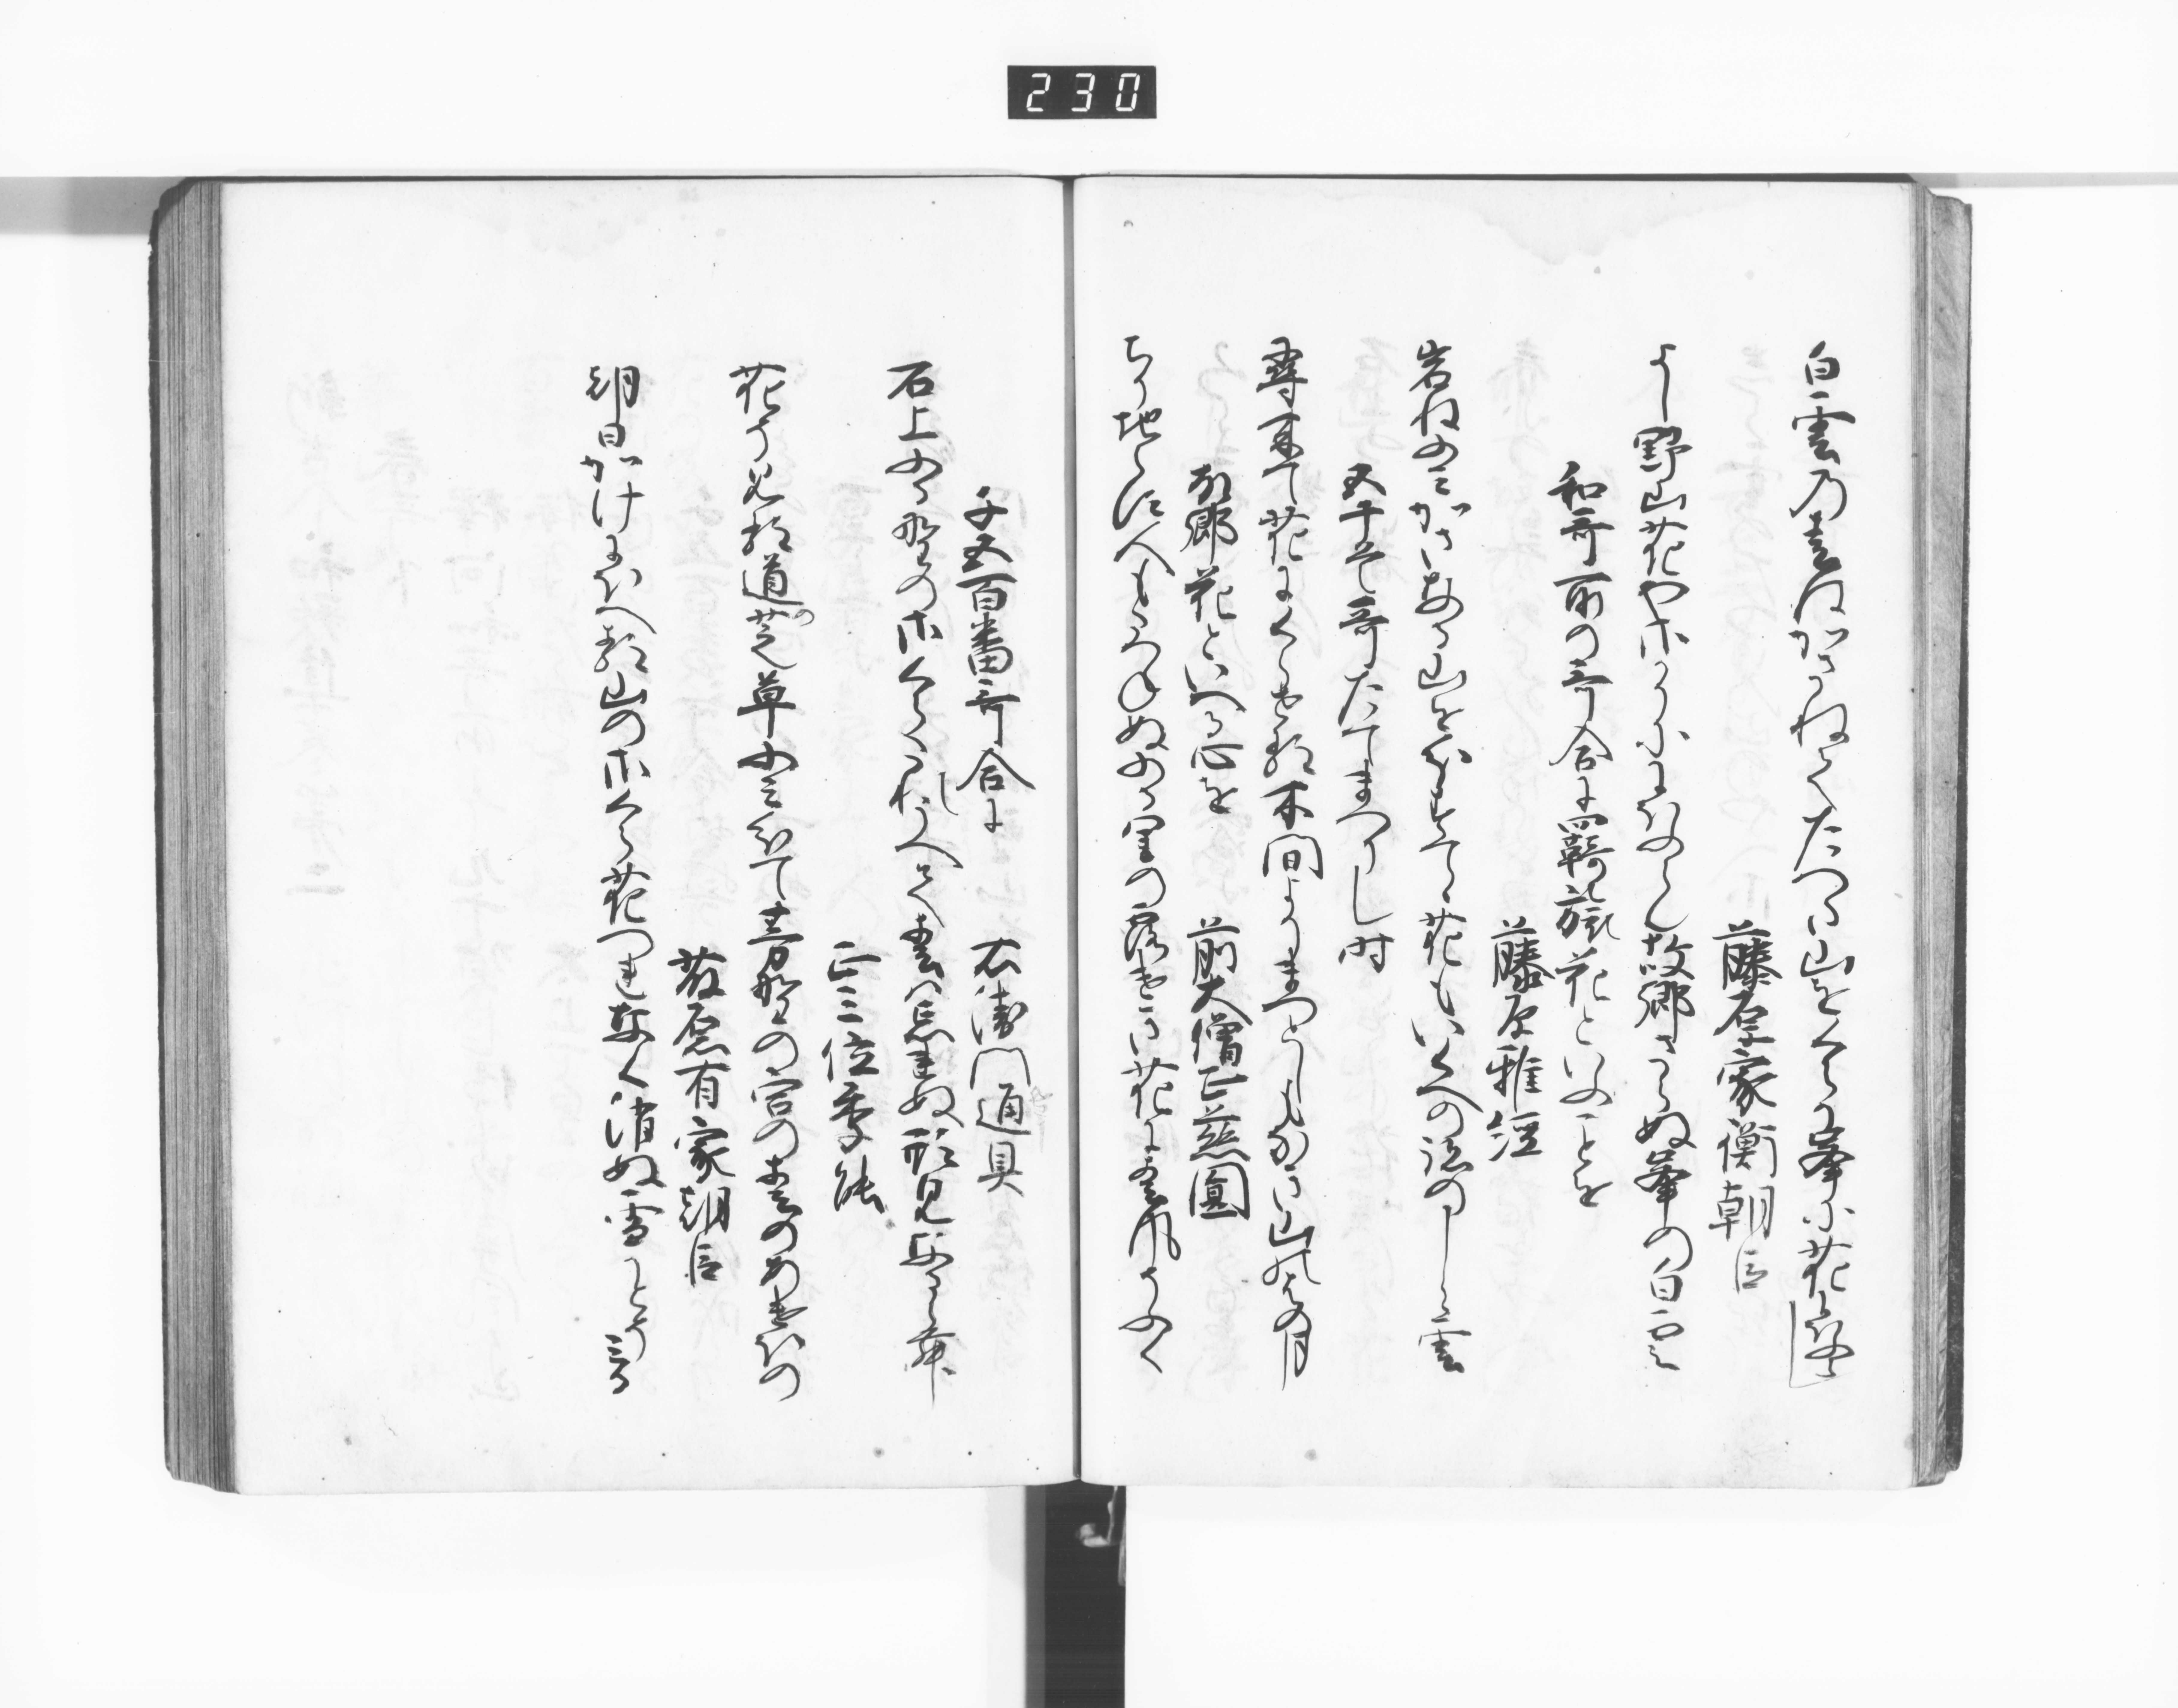 230
白雲乃春はかさねてたつた山をくらの峯に花にほふらし
藤原家衡朝臣
よし野山花やさかりににほふらん故郷さらぬ峯の白雪
和哥所の哥合に羇旅花といふことを
藤原雅経
岩ねふみかさなる山を分すてゝ花もいくへの跡のしら雲
五十首哥たてまつりし時
尋来て花にくらせる木間よりまつとしもなき山の端の月
故郷花といへる心を
前大僧正慈圓
ちり地らす人もたつねぬふる里の露けき花に春風そふく
千五百番哥合に
右衛門督通具
石上ふる野のさくらたれうへて春は忘れぬ形見なるらむ
正三位季能
花そ見る道の芝草ふみ分て吉野の宮の春のあけほの
藤原有家朝臣
朝日かけにほへる山のさくら花つれなく消ぬ雪かとそみる